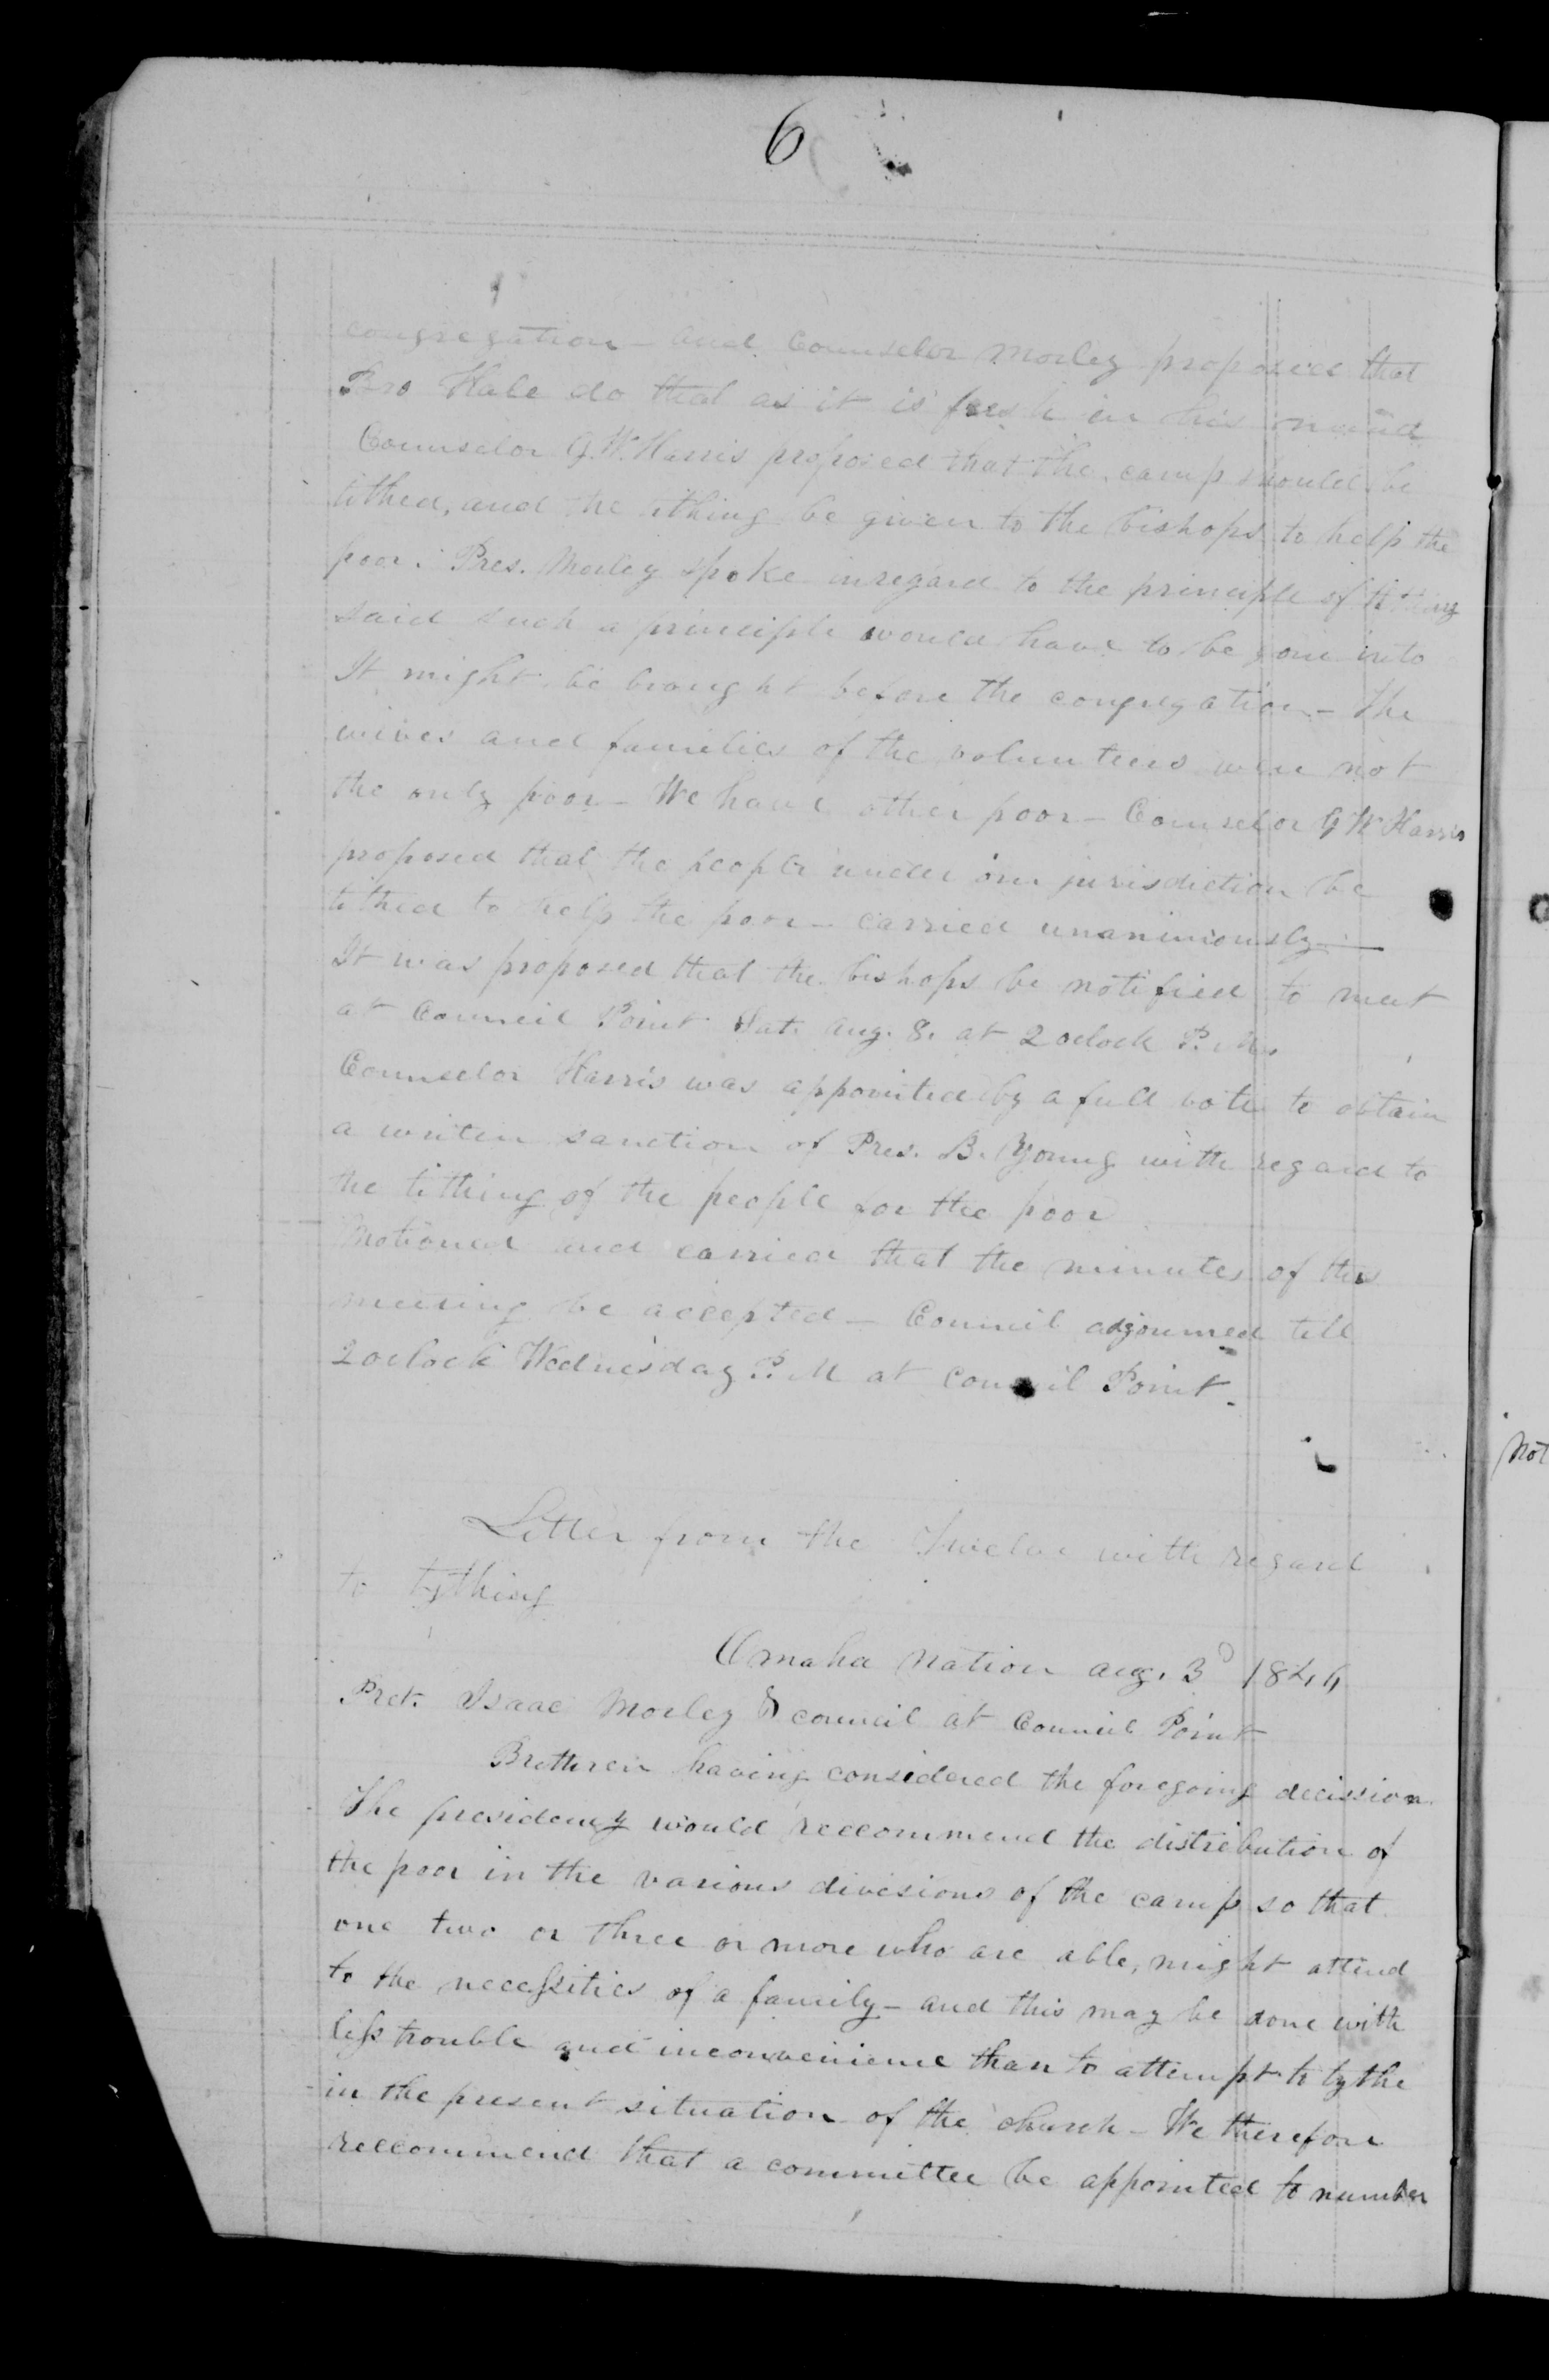 6
congregation - and Counselor Morley proposed that
Bro Hale do that as it is fresh in his mind
Counselor G. W. Harris proposed that the camp should be
tithed, and the tithing be given to the bishops to help the
poor. Pres. Morley spoke in regard to the principle of tithing
said such a principle would have to be gone into
It might be brought before the congregation - The
wives and families of the volunteers were not
the only poor - We have other poor - Counselor G W Harris
proposed that the people under our jurisdiction be
tithed to help the poor - carried unanimously -
It was proposed that the bishops be notified to meet
at Council Point Sat. Aug. 8. at 2 oclock P. M.
Counselor Harris was appointed by a full vote to obtain
a writen sanction of Pres. B. Young with regard to
the tithing of the people for the poor
Motioned and carried that the minutes of this
meeting be accepted - Council adjourned till
2 oclock Wednesday P. M at Council Point.
Letter from the Twelve with regard
to tything
Omaha Nation aug. 3d 1846
Prct. Isaac Morley & council at Council Point
Brethren having considered the foregoing decission
The presidency would reccommend the distribution of
the poor in the various divisions of the camp so that
one two or three or more who are able, might attend
to the necessities of a family - and this may be done with
less trouble and inconvenience than to attempt to tythe
in the present situation of the church - We therefore
reccommend that a committee be appointed to number
Not